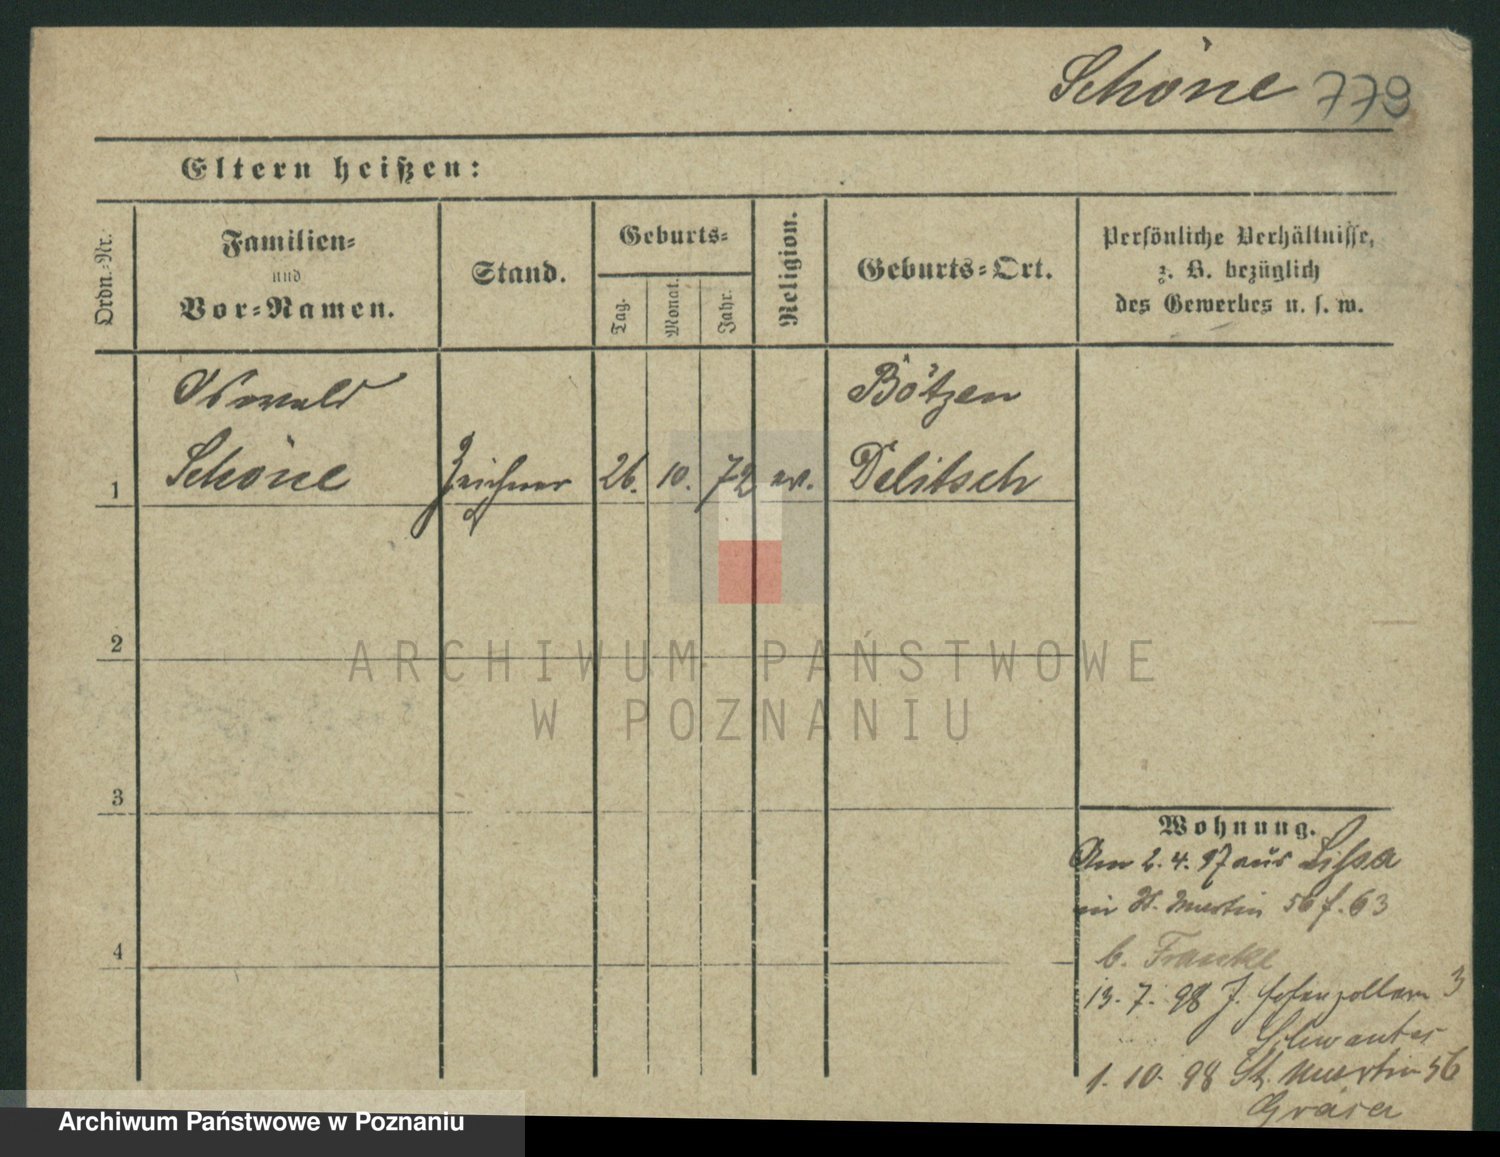 Schöne 779
Eltern heißen:
Ordn.-Nr.
Familien-
und
Vor-Namen.
Stand.
Geburts-
Tag.
Monat.
Jahr.
Religion.
Geburts-Ort.
Persönliche Verhältnisse,
z. B. bezüglich
des Gewerbes u. s. w.
Oswald Bötzen
1 Schöne Zeichner 26. 10. 72 ev. Delitsch
2
ARCHIWUM PAŃSTWOWE
W POZNANIU
3
Wohnung.
Am 2. 4. 97 aus Lissa
in St. Martin 56 63
4
b. Francke
13. 7. 98 Hohenzollern 3
Schwantes
1. 10. 98 St. Martin 56
Archiwum Państwowe w Poznaniu